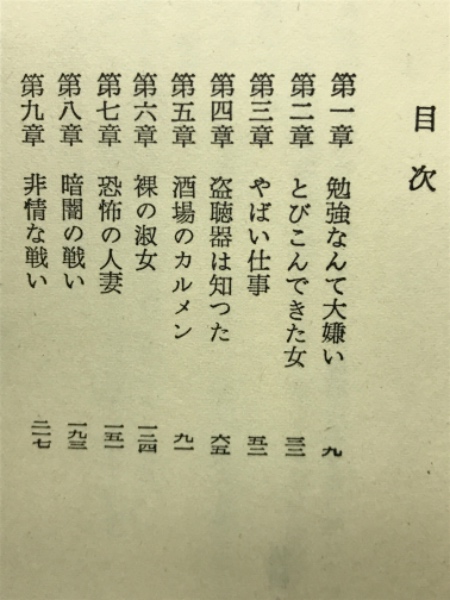 目次
第一章 勉強なんて大嫌い 九
第二章 とびこんできた女 三三
第三章 やばい仕事 五二
第四章 盗聴器は知つた 六五
第五章 酒場のカルメン 九一
第六章 裸の淑女 一二四
第七章 恐怖の人妻 一五一
第八章 暗闇の戦い 一九三
第九章 非情な戦い 二一七